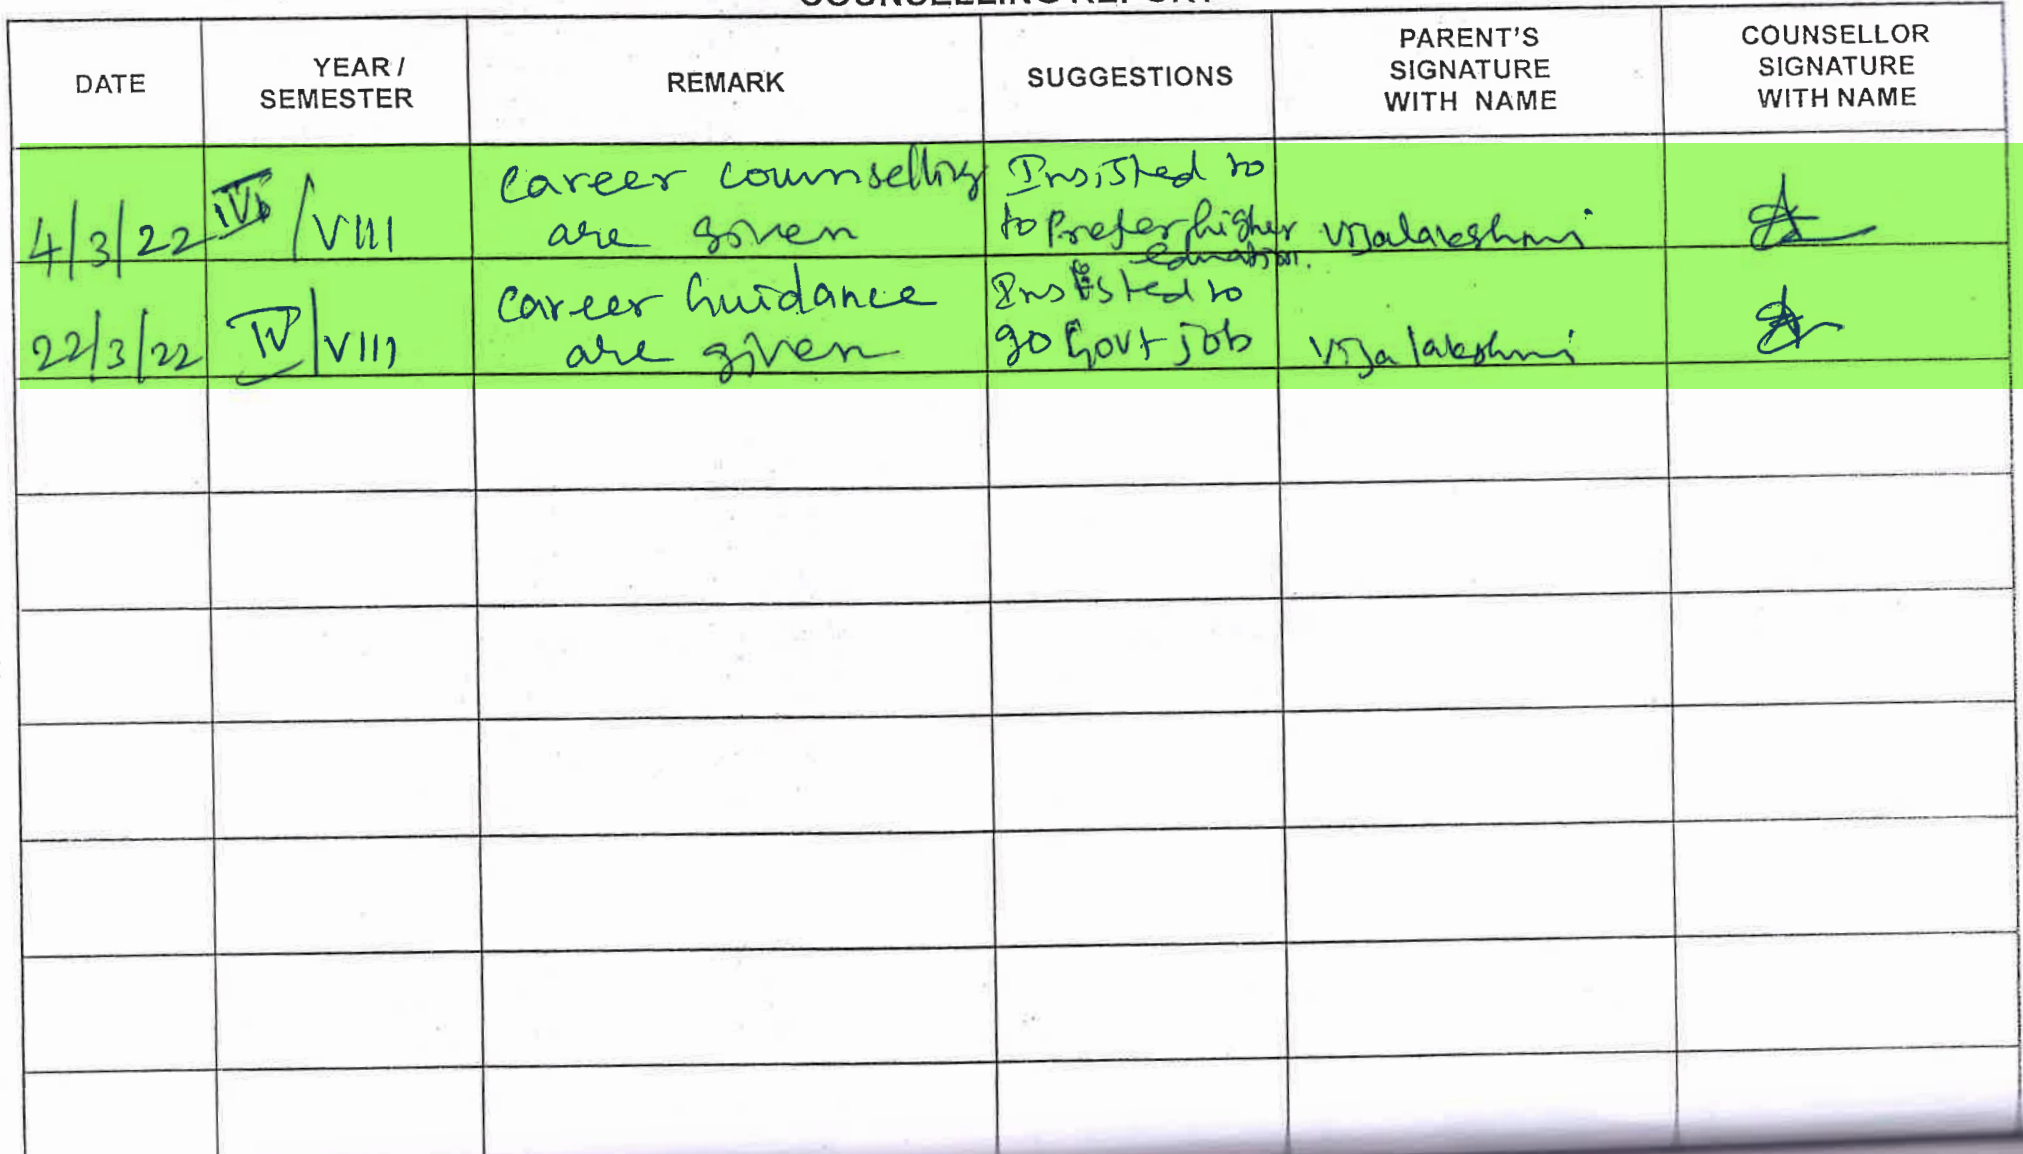 COUNSELLING REPORT
DATE
YEAR /
SEMESTER
REMARK
SUGGESTIONS
PARENT'S
SIGNATURE
WITH NAME
COUNSELLOR
SIGNATURE
WITH NAME
4/3/22
IV
/VIII
Career counselling
are given
Insisted to
to Prefer higher
education.
Vijalakshmi
22/3/22
IV/VIII
Career Guidance
are given
Insisted to
go Govt job
Vijalakshmi